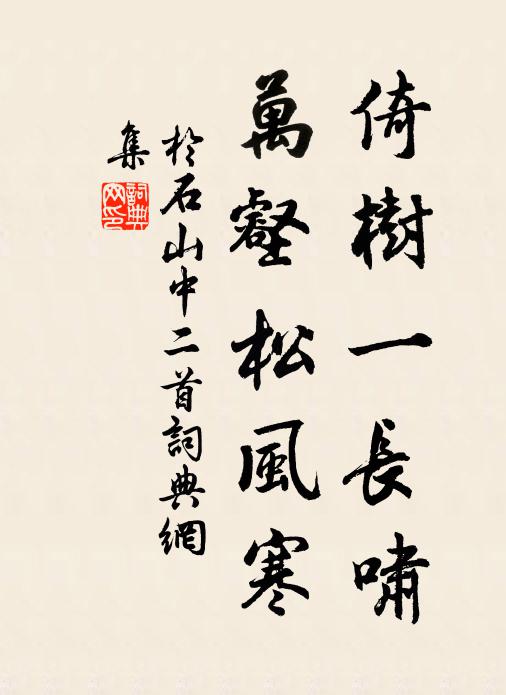 倚樹一長嘯
萬壑松風寒
於石山中二首詞典網
集
詞典
网印